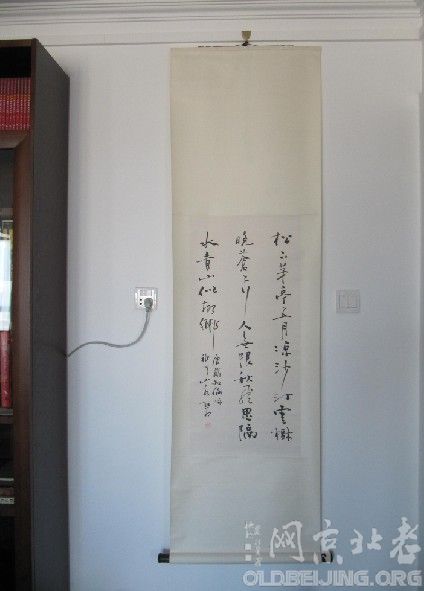 松下茅亭五月凉沙汀雲樹
晚蒼々行人無限秋風思隔
水青山似故鄉
唐戴叔倫
老北京网
OLDBEIJING.ORG